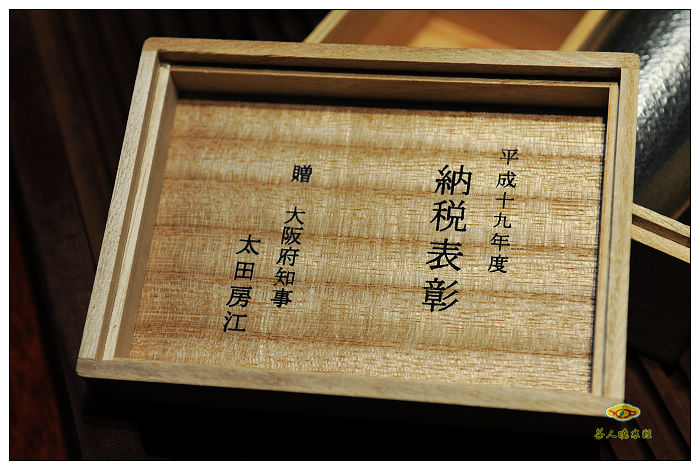 平成十九年度
納税表彰
贈 大阪府知事
太田房江